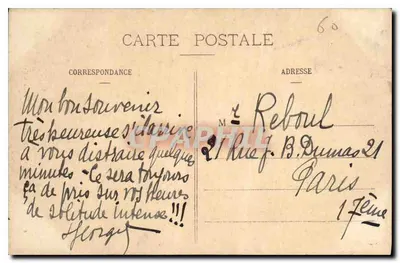 60
CARTE POSTALE
CORRESPONDANCE
ADRESSE
Mon bon souvenir
très heureuse s'il arrive
a vous distraire quelques
minutes - Ce sera toujours
ça de pris sur vos heures
de solitude intense !!!
Georget
M r Reboul
21 Rue J. B. Dumas 21
Paris
17ème